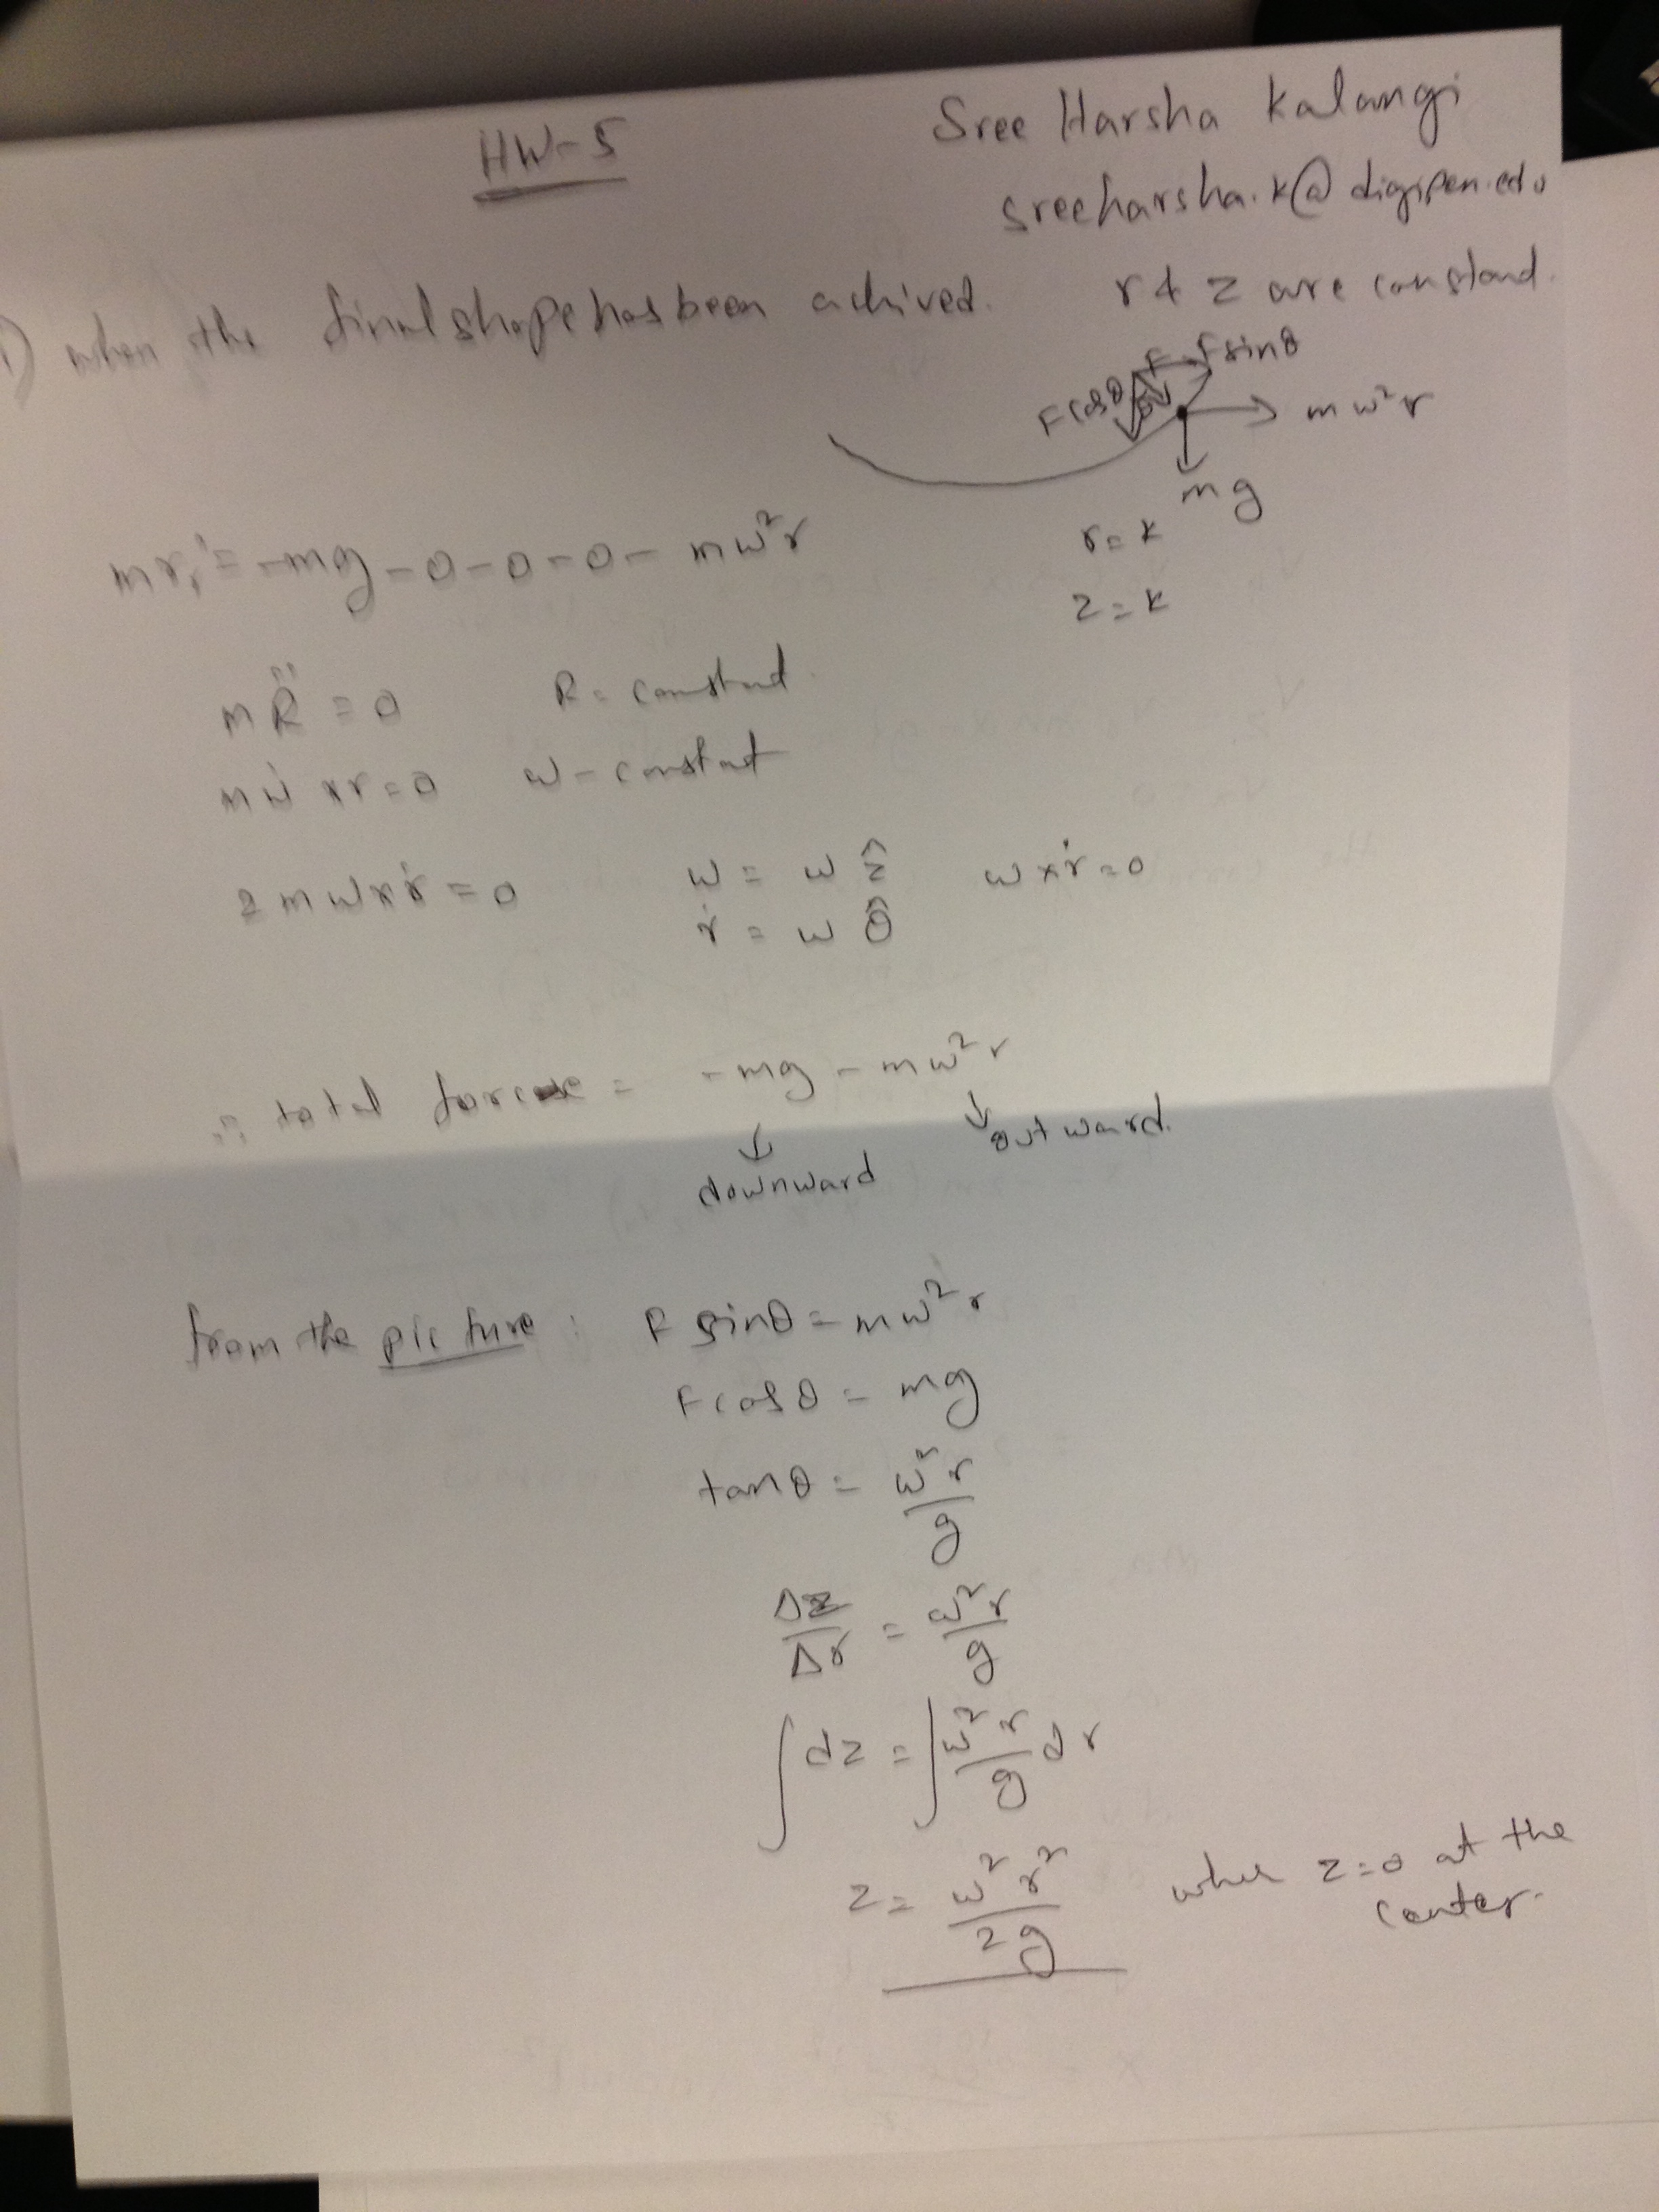 HW-5
Sree Harsha Kalangi
sreeharsha.k@digipen.edu
1) when the final shape has been achived. r & z are constand.
F F sinθ
F cosθ θ
mω²r
mg
r = k
z = k
m r̈ = -mg - 0 - 0 - 0 - mω²r
m R̈ = 0 R = constand.
m ω̇ × r = 0 ω - constant
2 m ω × ṙ = 0 ω = ω ẑ ω × ṙ = 0
ṙ = ω θ̂
∴ total force = - mg - mω²r
↓ downward ↓ outward.
from the picture : F sinθ = mω²r
F cosθ = mg
tanθ = ω²r / g
Δz / Δr = ω²r / g
∫ dz = ∫ ω²r / g dr
z = ω²r² / 2g when z=0 at the
center.